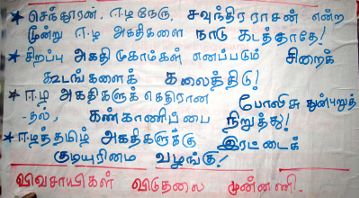 ★ செந்தூரன், ஈழநேரு, சவுந்திரராசன் என்ற
மூன்று ஈழ அகதிகளை நாடு கடத்தாதே!
★ சிறப்பு அகதி முகாம்கள் எனப்படும் சிறைக்
கூடங்களைக் கலைத்திடு!
★ ஈழ அகதிகளுக்கெதிரான போலிசு துன்புறுத்
-தல், கண்காணிப்பை நிறுத்து!
★ ஈழத்தமிழ் அகதிகளுக்கு இரட்டைக்
குடியுரிமை வழங்கு!
விவசாயிகள் விடுதலை முன்னணி.